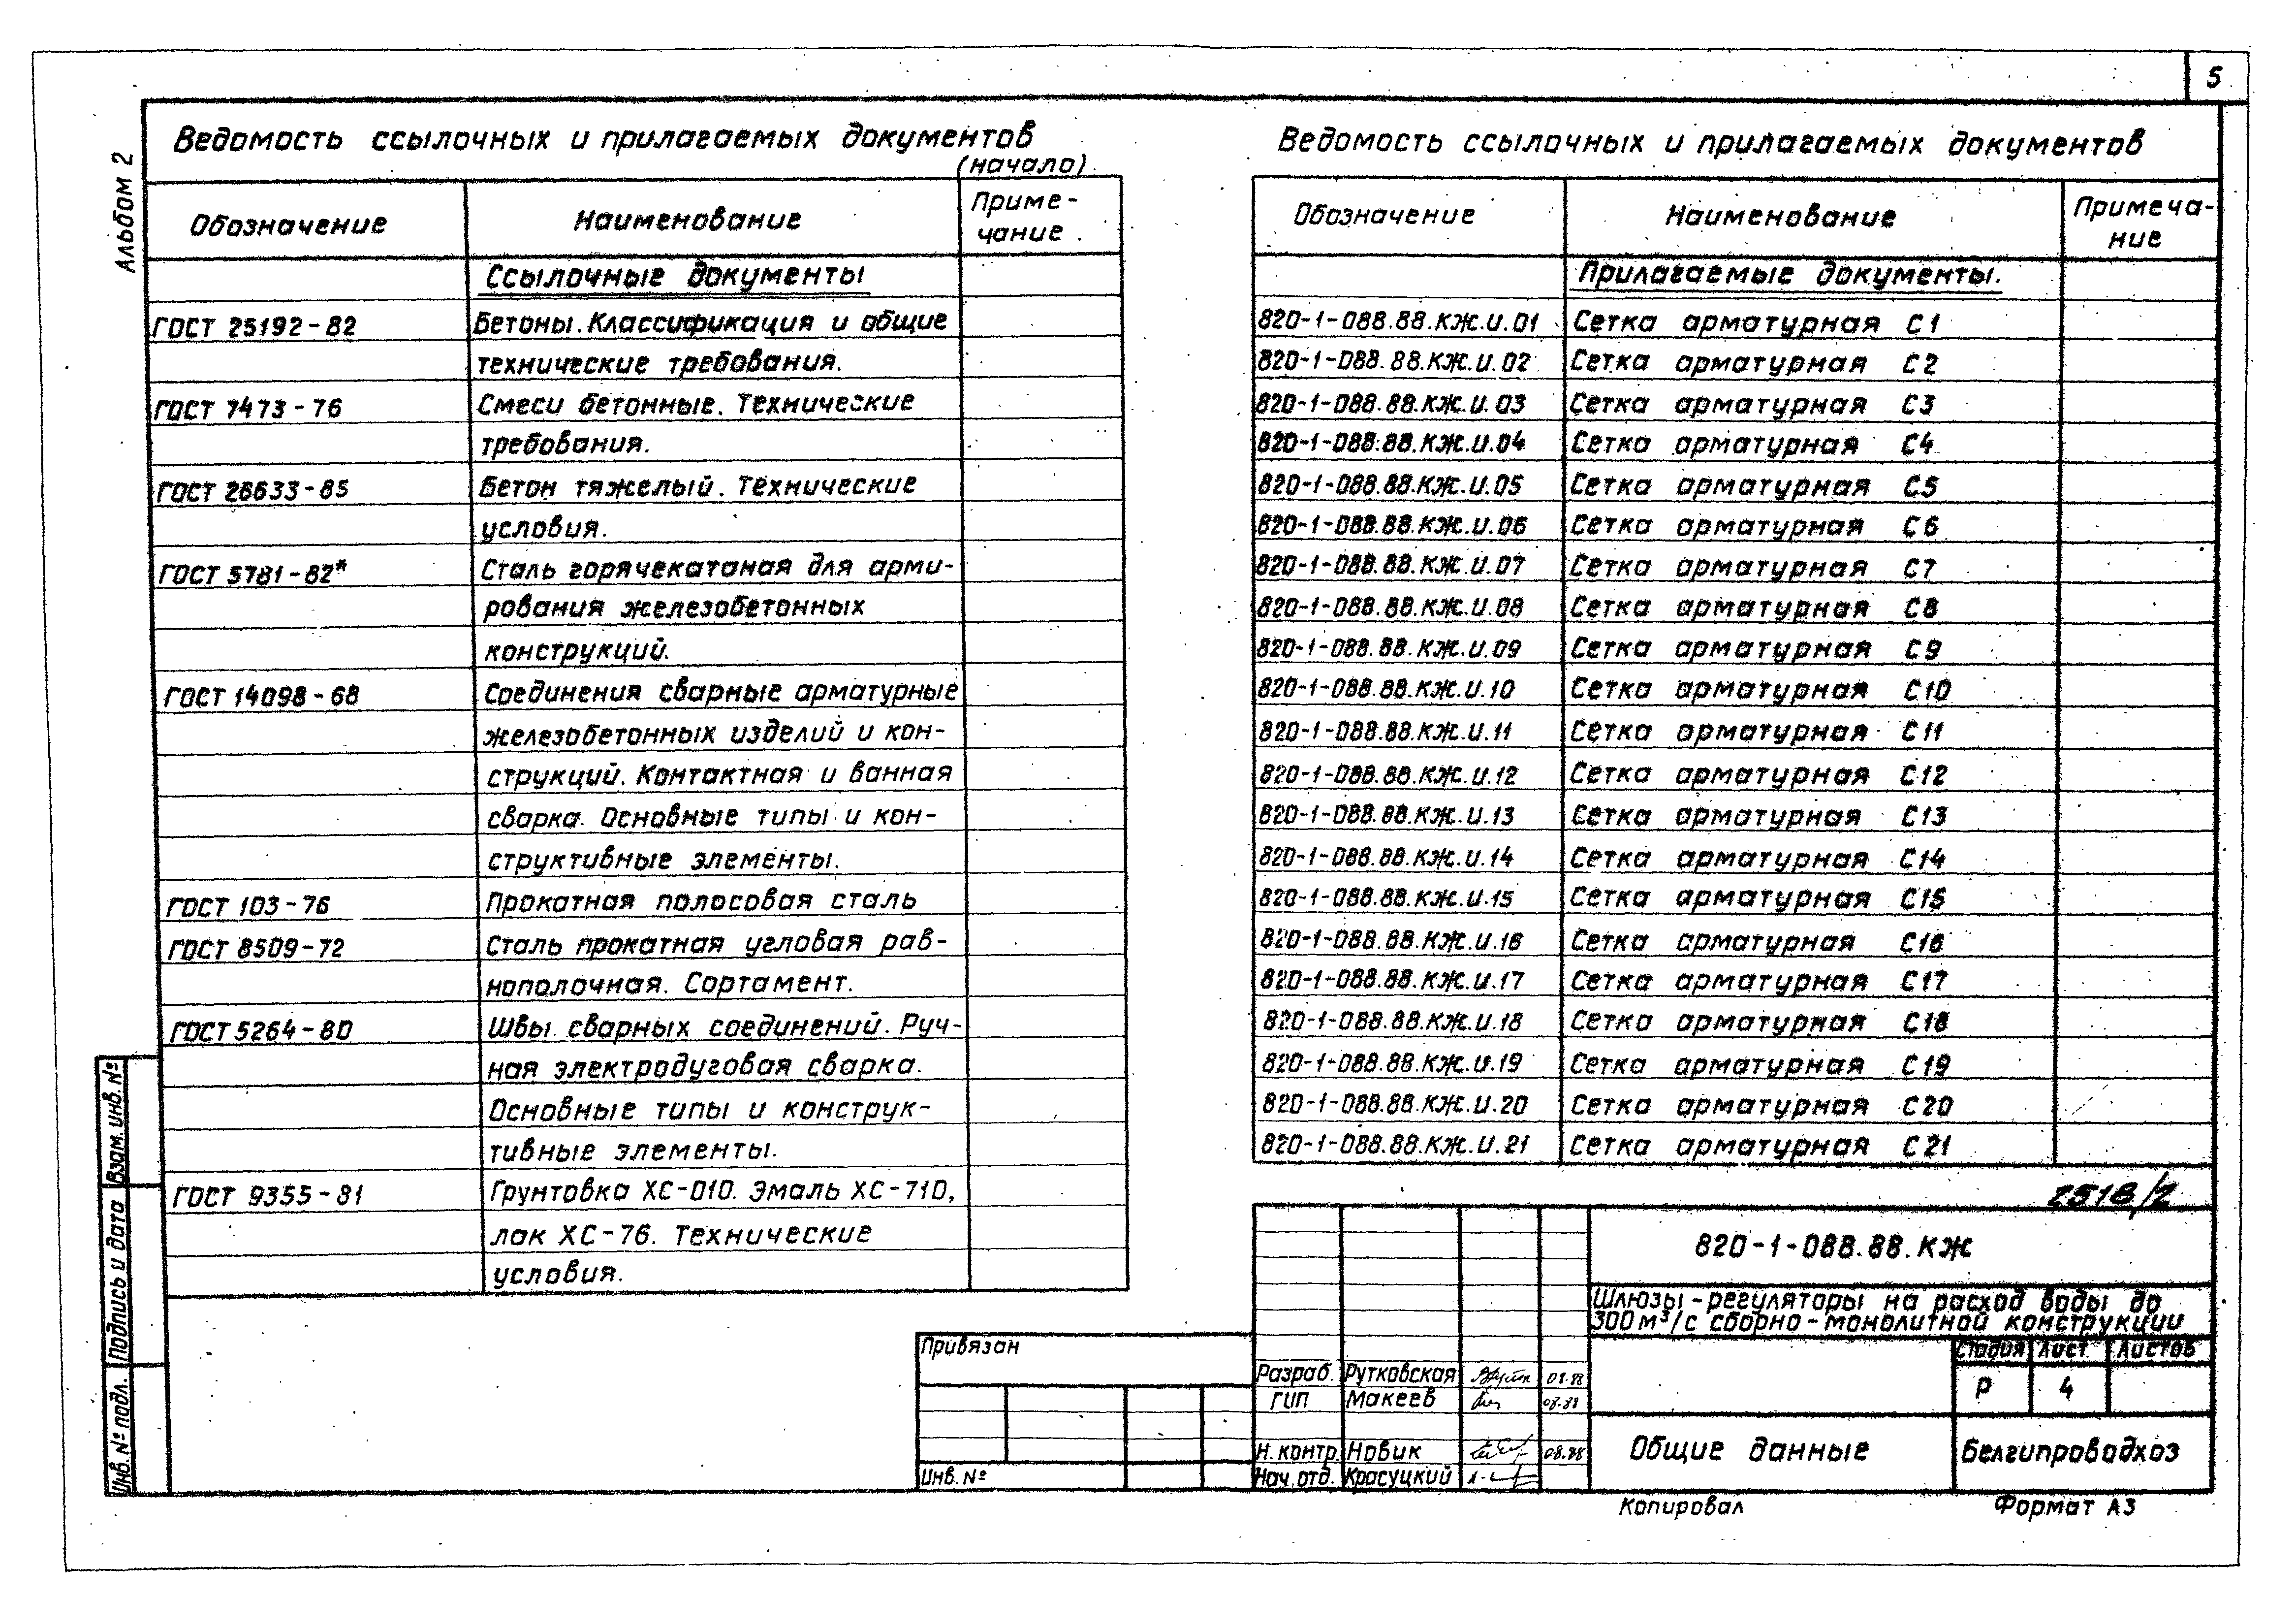 5
Альбом 2
Ведомость ссылочных и прилагаемых документов
(начало)
Обозначение Наименование Приме-
чание
Ссылочные документы
ГОСТ 25192-82 Бетоны. Классификация и общие
технические требования.
ГОСТ 7473-76 Смеси бетонные. Технические
требования.
ГОСТ 26633-85 Бетон тяжелый. Технические
условия.
ГОСТ 5781-82* Сталь горячекатаная для арми-
рования железобетонных
конструкций.
ГОСТ 14098-68 Соединения сварные арматурные
железобетонных изделий и кон-
струкций. Контактная и ванная
сварка. Основные типы и кон-
структивные элементы.
ГОСТ 103-76 Прокатная полосовая сталь
ГОСТ 8509-72 Сталь прокатная угловая рав-
нополочная. Сортамент.
ГОСТ 5264-80 Швы сварных соединений. Руч-
ная электродуговая сварка.
Основные типы и конструк-
тивные элементы.
ГОСТ 9355-81 Грунтовка ХС-010. Эмаль ХС-710,
лак ХС-76. Технические
условия.
Ведомость ссылочных и прилагаемых документов
Обозначение Наименование Примеча-
ние
Прилагаемые документы.
820-1-088.88.КЖ.И.01 Сетка арматурная С1
820-1-088.88.КЖ.И.02 Сетка арматурная С2
820-1-088.88.КЖ.И.03 Сетка арматурная С3
820-1-088.88.КЖ.И.04 Сетка арматурная С4
820-1-088.88.КЖ.И.05 Сетка арматурная С5
820-1-088.88.КЖ.И.06 Сетка арматурная С6
820-1-088.88.КЖ.И.07 Сетка арматурная С7
820-1-088.88.КЖ.И.08 Сетка арматурная С8
820-1-088.88.КЖ.И.09 Сетка арматурная С9
820-1-088.88.КЖ.И.10 Сетка арматурная С10
820-1-088.88.КЖ.И.11 Сетка арматурная С11
820-1-088.88.КЖ.И.12 Сетка арматурная С12
820-1-088.88.КЖ.И.13 Сетка арматурная С13
820-1-088.88.КЖ.И.14 Сетка арматурная С14
820-1-088.88.КЖ.И.15 Сетка арматурная С15
820-1-088.88.КЖ.И.16 Сетка арматурная С16
820-1-088.88.КЖ.И.17 Сетка арматурная С17
820-1-088.88.КЖ.И.18 Сетка арматурная С18
820-1-088.88.КЖ.И.19 Сетка арматурная С19
820-1-088.88.КЖ.И.20 Сетка арматурная С20
820-1-088.88.КЖ.И.21 Сетка арматурная С21
2518/2
820-1-088.88.КЖ
Шлюзы-регуляторы на расход воды до
300 м³/с сборно-монолитной конструкции
Стадия Лист Листов
Р 4
Привязан
Инв. №
Разраб. Рутковская 08.88
ГИП Макеев 08.88
Н. контр. Новик 08.88
Нач. отд. Красуцкий
Общие данные
Белгипроводхоз
Копировал Формат А3
Взам. инв. №
Подпись и дата
Инв. № подл.